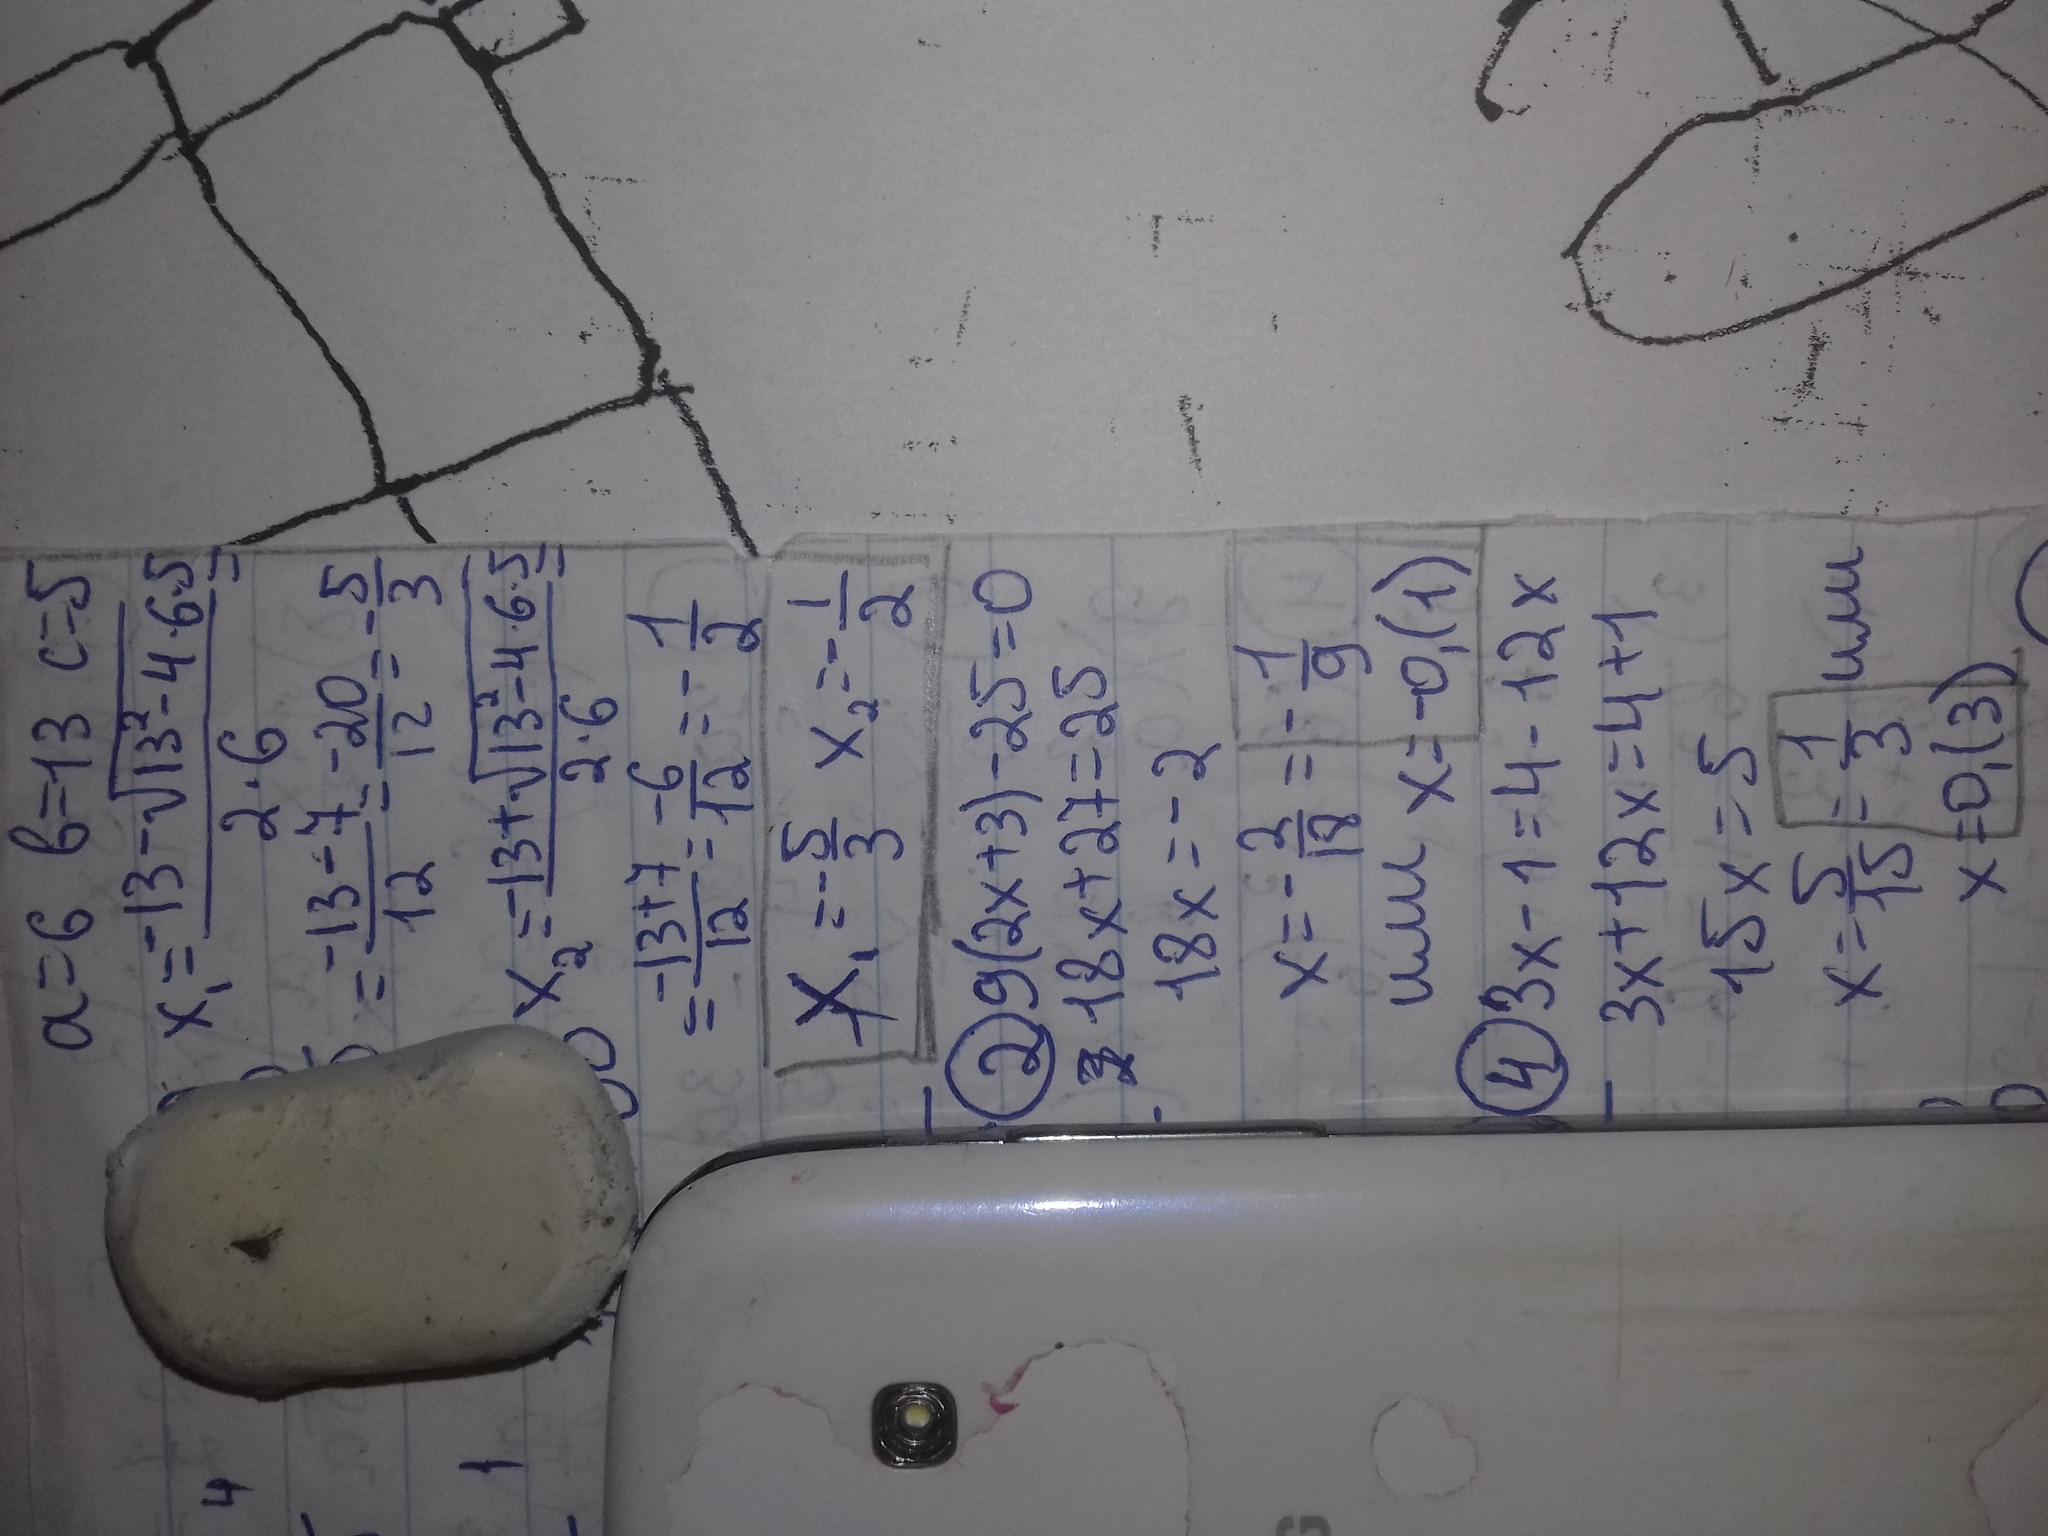 a=6 b=13 c=5
x₁=(-13-√(13²-4·6·5))/(2·6)=
=(-13-7)/12=-20/12=-5/3
x₂=(-13+√(13²-4·6·5))/(2·6)=
=(-13+7)/12=-6/12=-1/2
x₁=-5/3 x₂=-1/2
② 9(2x+3)-25=0
18x+27=25
18x=-2
x=-2/18=-1/9
или x=-0,(1)
④ 3x-1=4-12x
3x+12x=4+1
15x=5
x=5/15=1/3 или
x=0,(3)
4
1